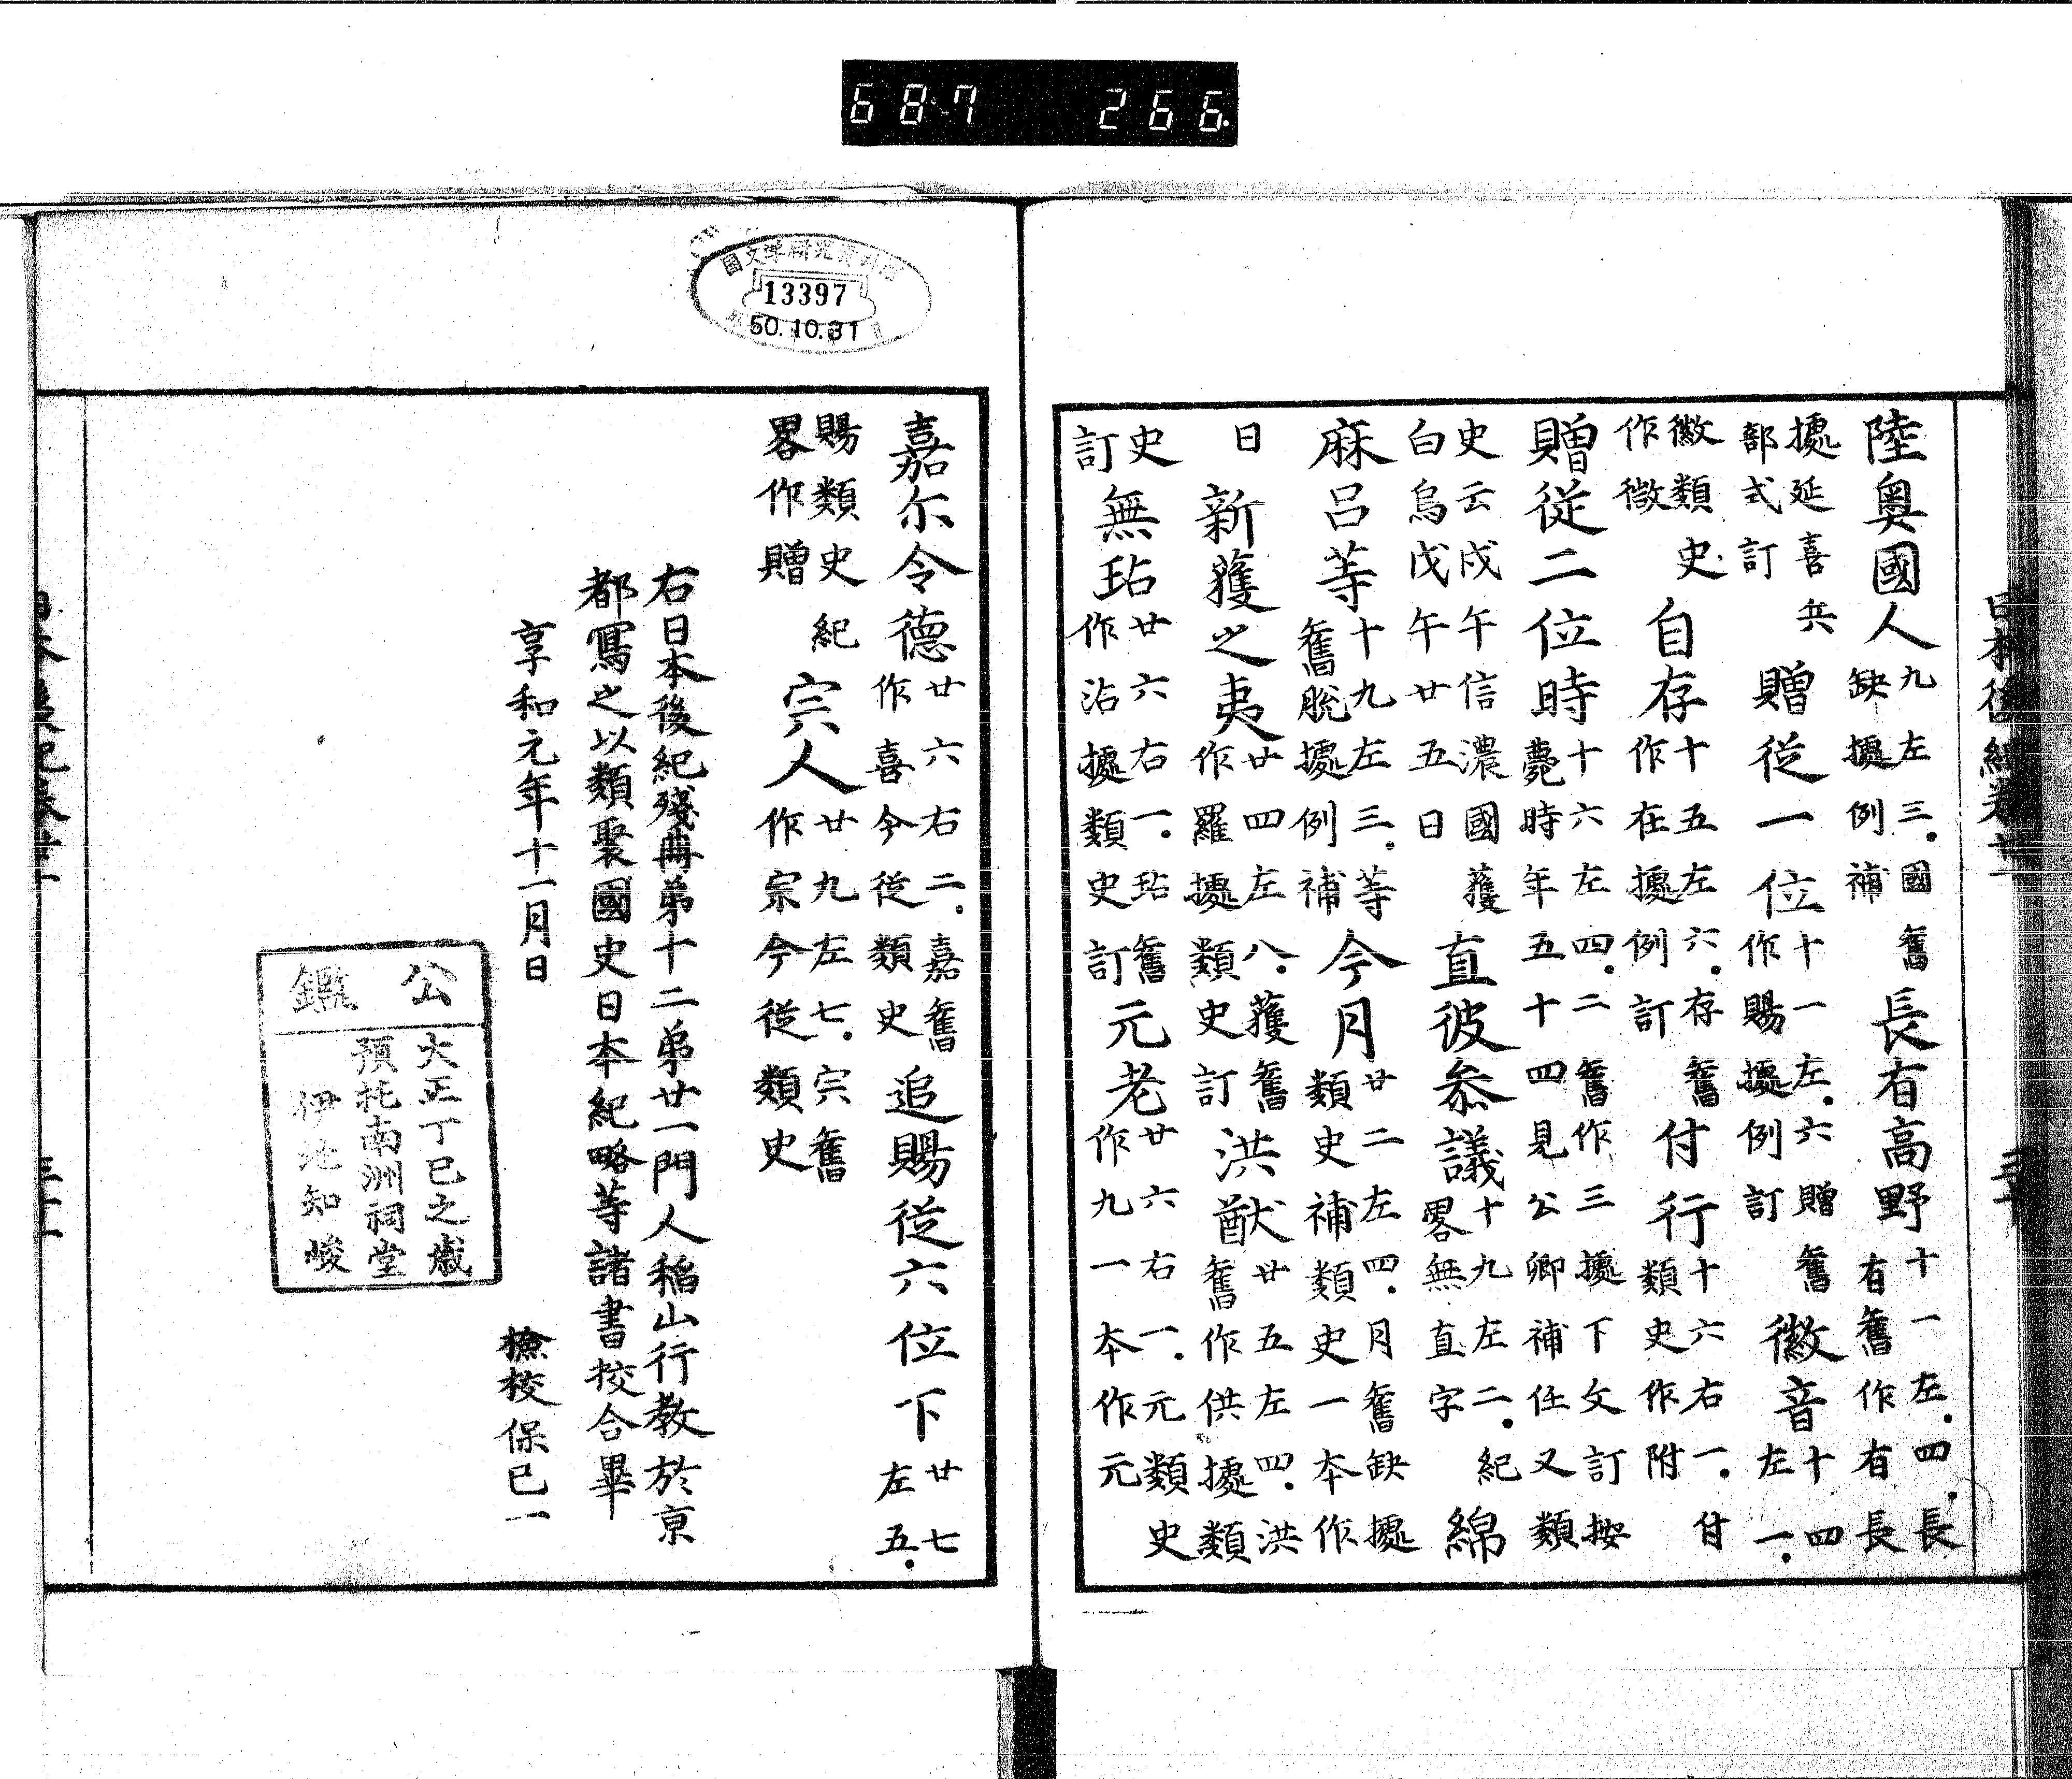 687 266
日本後紀卷廿一 三十
陸奧國人九左三。國舊缺據例補長有高野十一左。四。長有舊作有長
據延喜兵部式訂贈從一位十一左。六贈舊作賜據例訂徽音十四左一。
徽類史作徵自存十五左六。存舊作在據例訂付行十六右一。付類史作附
贈從二位時十六左四。二舊作三據下文訂按薨時年五十四見公卿補任又類
史云戊午信濃國獲白烏戊午廿五日直彼參議十九左二。紀畧無直字綿
麻呂等十九左三。等舊脫據例補今月廿二左四。月舊缺據類史補類史一本作
日新獲之夷廿四左八。獲舊作羅據類史訂洪猷廿五左四。洪舊作供據類
史訂無玷廿六右一。玷舊作沾據類史訂元老廿六右一。元類史作九一本作元
國文學研究資料館
13397
50.10.31
嘉尓令德廿六右二。嘉舊作喜今從類史追賜從六位下廿七左五。
賜類史紀畧作贈宗人廿九左七。宗舊作宗今從類史
右日本後紀殘冊第十二第廿一門人稻山行教於京
都寫之以類聚國史日本紀略等諸書挍合畢
享和元年十一月日
檢校保己一
公鑑
大正丁巳之歲
預托南洲祠堂
伊地知峻
日本後紀卷廿一 三十一